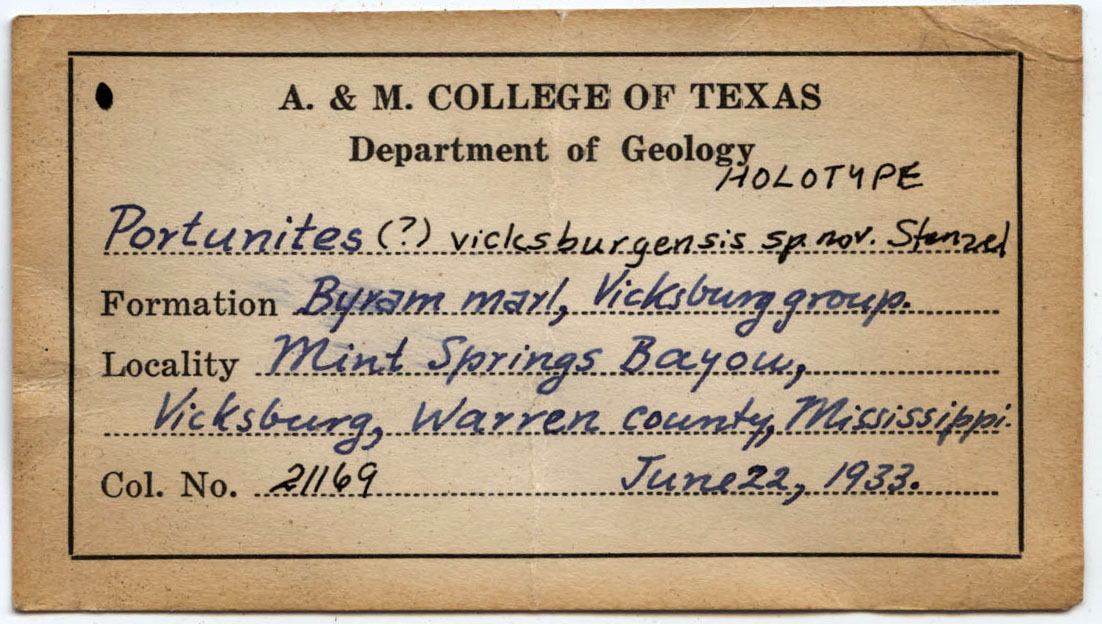 A. & M. COLLEGE OF TEXAS
Department of Geology
HOLOTYPE
Portunites (?) vicksburgensis sp. nov. Stenzel
Formation Byram marl, Vicksburg group.
Locality Mint Springs Bayou,
Vicksburg, Warren county, Mississippi.
Col. No. 21169 June 22, 1933.